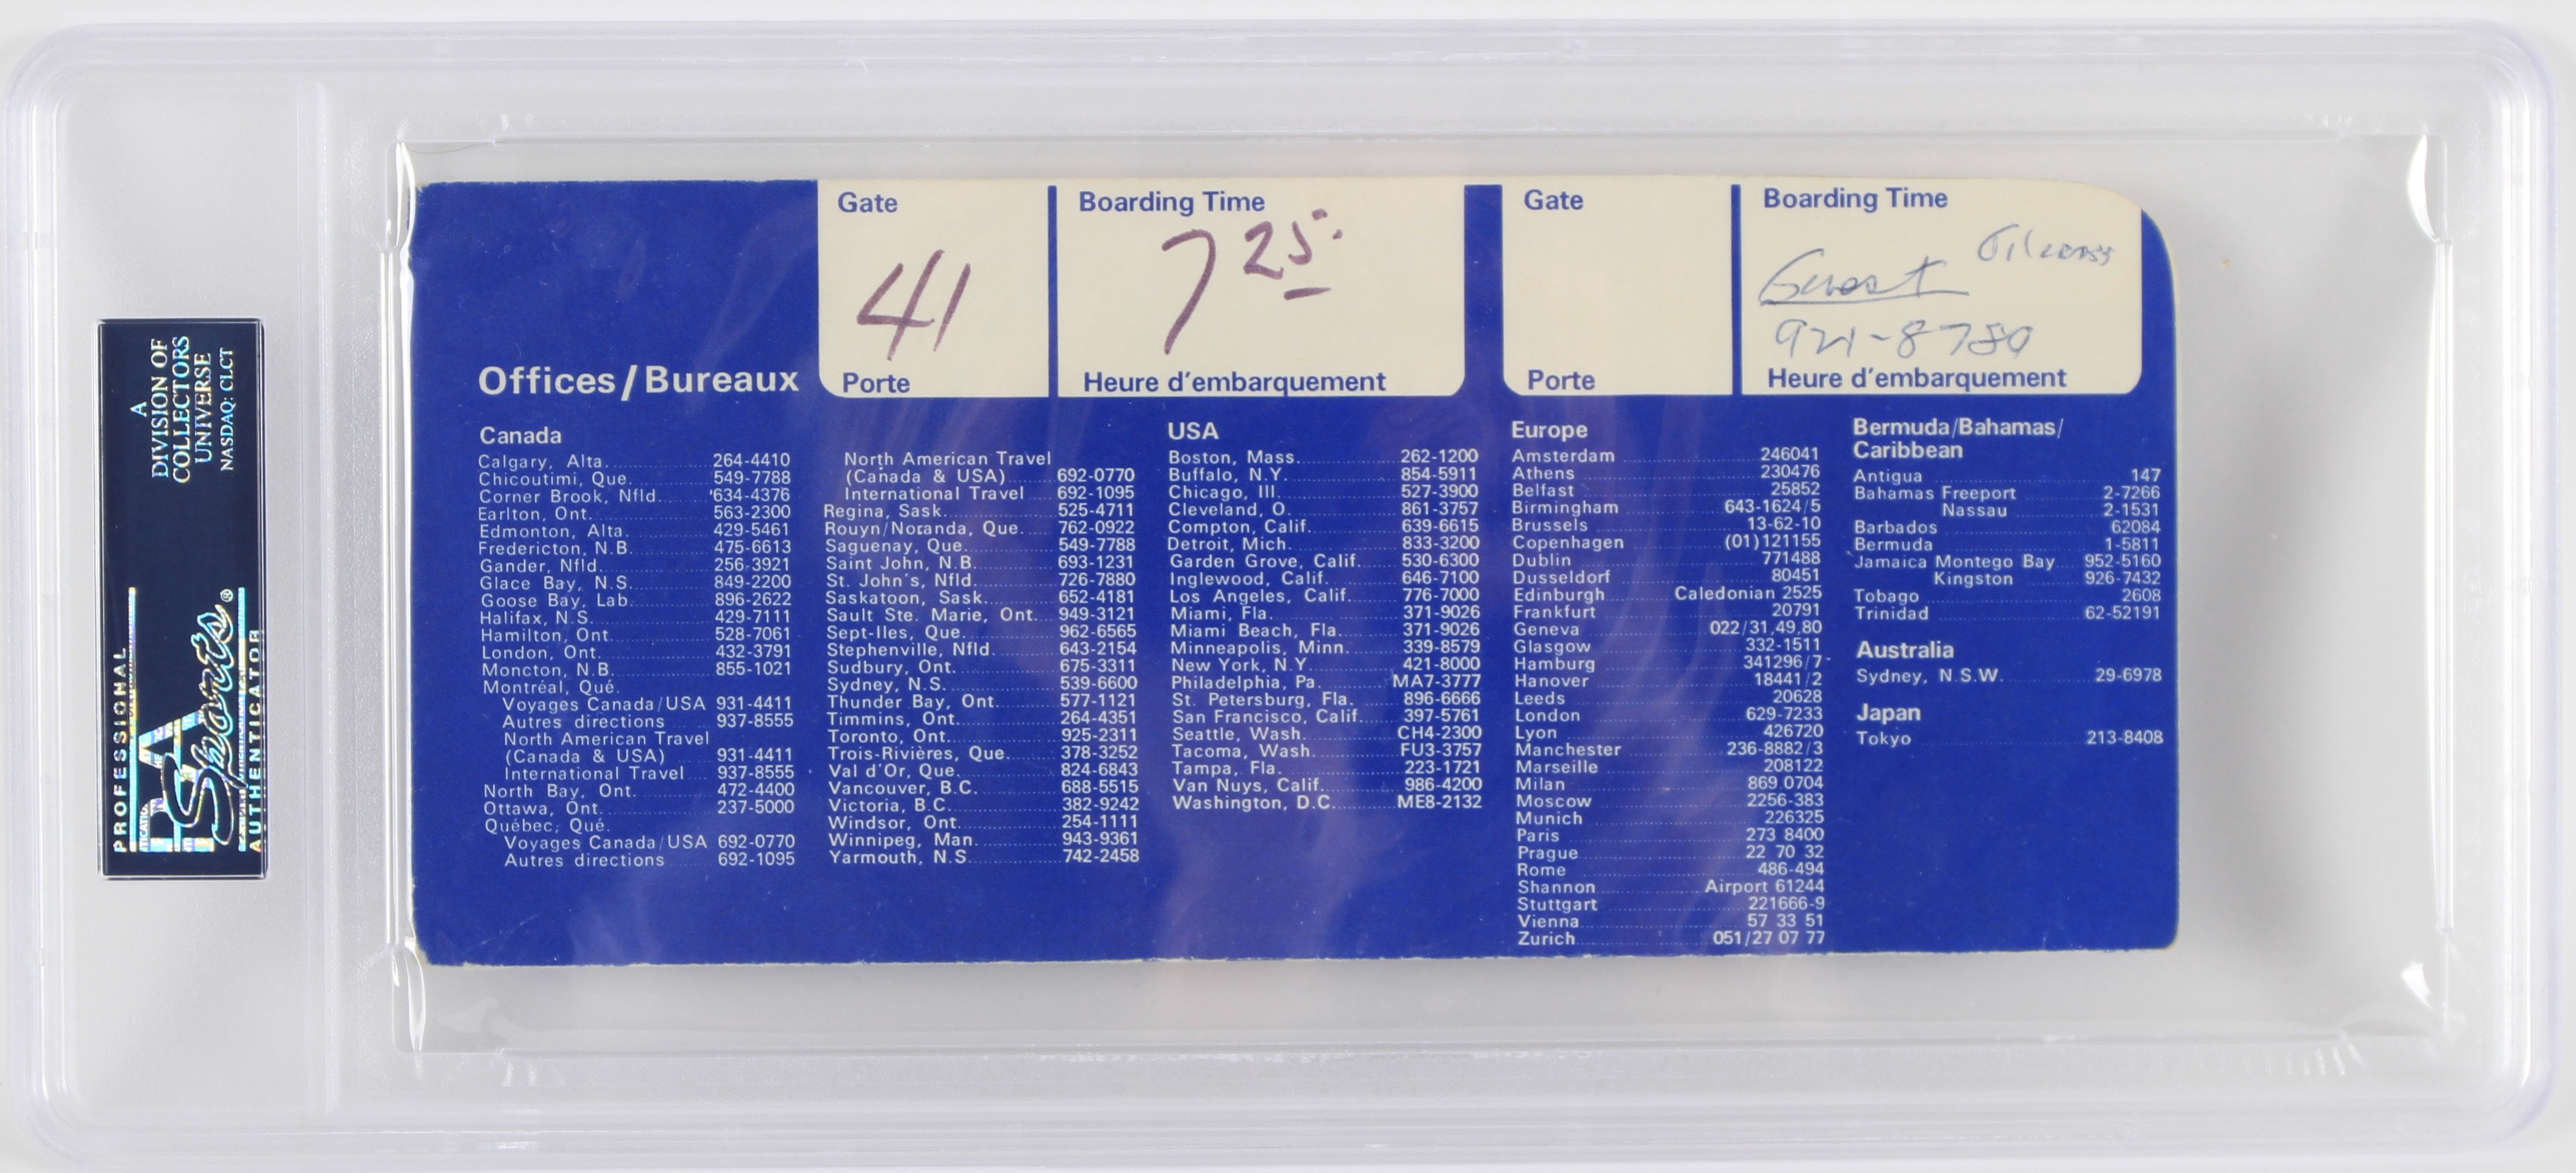 Gate
41
Porte
Boarding Time
7 25
Heure d'embarquement
Gate
Porte
Boarding Time
Guest
921-8789
Heure d'embarquement
Offices/Bureaux
Canada
Calgary, Alta. 264-4410
Chicoutimi, Que. 549-7788
Corner Brook, Nfld. 634-4376
Earlton, Ont. 563-2300
Edmonton, Alta. 429-5461
Fredericton, N.B. 475-6613
Gander, Nfld. 256-3921
Glace Bay, N.S. 849-2200
Goose Bay, Lab. 896-2622
Halifax, N.S. 429-7111
Hamilton, Ont. 528-7061
London, Ont. 432-3791
Moncton, N.B. 855-1021
Montréal, Qué.
Voyages Canada/USA 931-4411
Autres directions 937-8555
North American Travel
(Canada & USA) 931-4411
International Travel 937-8555
North Bay, Ont. 472-4400
Ottawa, Ont. 237-5000
Québec, Qué.
Voyages Canada/USA 692-0770
Autres directions 692-1095
North American Travel
(Canada & USA) 692-0770
International Travel 692-1095
Regina, Sask. 525-4711
Rouyn/Noranda, Que. 762-0922
Saguenay, Que. 549-7788
Saint John, N.B. 693-1231
St. John's, Nfld. 726-7880
Saskatoon, Sask. 652-4181
Sault Ste. Marie, Ont. 949-3121
Sept-Iles, Que. 962-6565
Stephenville, Nfld. 643-2154
Sudbury, Ont. 675-3311
Sydney, N.S. 539-6600
Thunder Bay, Ont. 577-1121
Timmins, Ont. 264-4351
Toronto, Ont. 925-2311
Trois-Rivières, Que. 378-3252
Val d'Or, Que. 824-6843
Vancouver, B.C. 688-5515
Victoria, B.C. 382-9242
Windsor, Ont. 254-1111
Winnipeg, Man. 943-9361
Yarmouth, N.S. 742-2458
USA
Boston, Mass. 262-1200
Buffalo, N.Y. 854-5911
Chicago, Ill. 527-3900
Cleveland, O. 861-3757
Compton, Calif. 639-6615
Detroit, Mich. 833-3200
Garden Grove, Calif. 530-6300
Inglewood, Calif. 646-7100
Los Angeles, Calif. 776-7000
Miami, Fla. 371-9026
Miami Beach, Fla. 371-9026
Minneapolis, Minn. 339-8579
New York, N.Y. 421-8000
Philadelphia, Pa. MA7-3777
St. Petersburg, Fla. 896-6666
San Francisco, Calif. 397-5761
Seattle, Wash. CH4-2300
Tacoma, Wash. FU3-3757
Tampa, Fla. 223-1721
Van Nuys, Calif. 986-4200
Washington, D.C. ME8-2132
Europe
Amsterdam 246041
Athens 230476
Belfast 25852
Birmingham 643-1624/5
Brussels 13-62-10
Copenhagen (01)121155
Dublin 771488
Dusseldorf 80451
Edinburgh Caledonian 2525
Frankfurt 20791
Geneva 022/31,49,80
Glasgow 332-1511
Hamburg 341296/7
Hanover 18441/2
Leeds 20628
London 629-7233
Lyon 426720
Manchester 236-8882/3
Marseille 208122
Milan 869 0704
Moscow 2256-383
Munich 226325
Paris 273 8400
Prague 22 70 32
Rome 486-494
Shannon Airport 61244
Stuttgart 221666-9
Vienna 57 33 51
Zurich 051/27 07 77
Bermuda/Bahamas/
Caribbean
Antigua 147
Bahamas Freeport 2-7266
Nassau 2-1531
Barbados 62084
Bermuda 1-5811
Jamaica Montego Bay 952-5160
Kingston 926-7432
Tobago 2608
Trinidad 62-52191
Australia
Sydney, N.S.W. 29-6978
Japan
Tokyo 213-8408
A
DIVISION OF
COLLECTORS
UNIVERSE
NASDAQ: CLCT
PROFESSIONAL
PSA
Sports®
AUTHENTICATOR